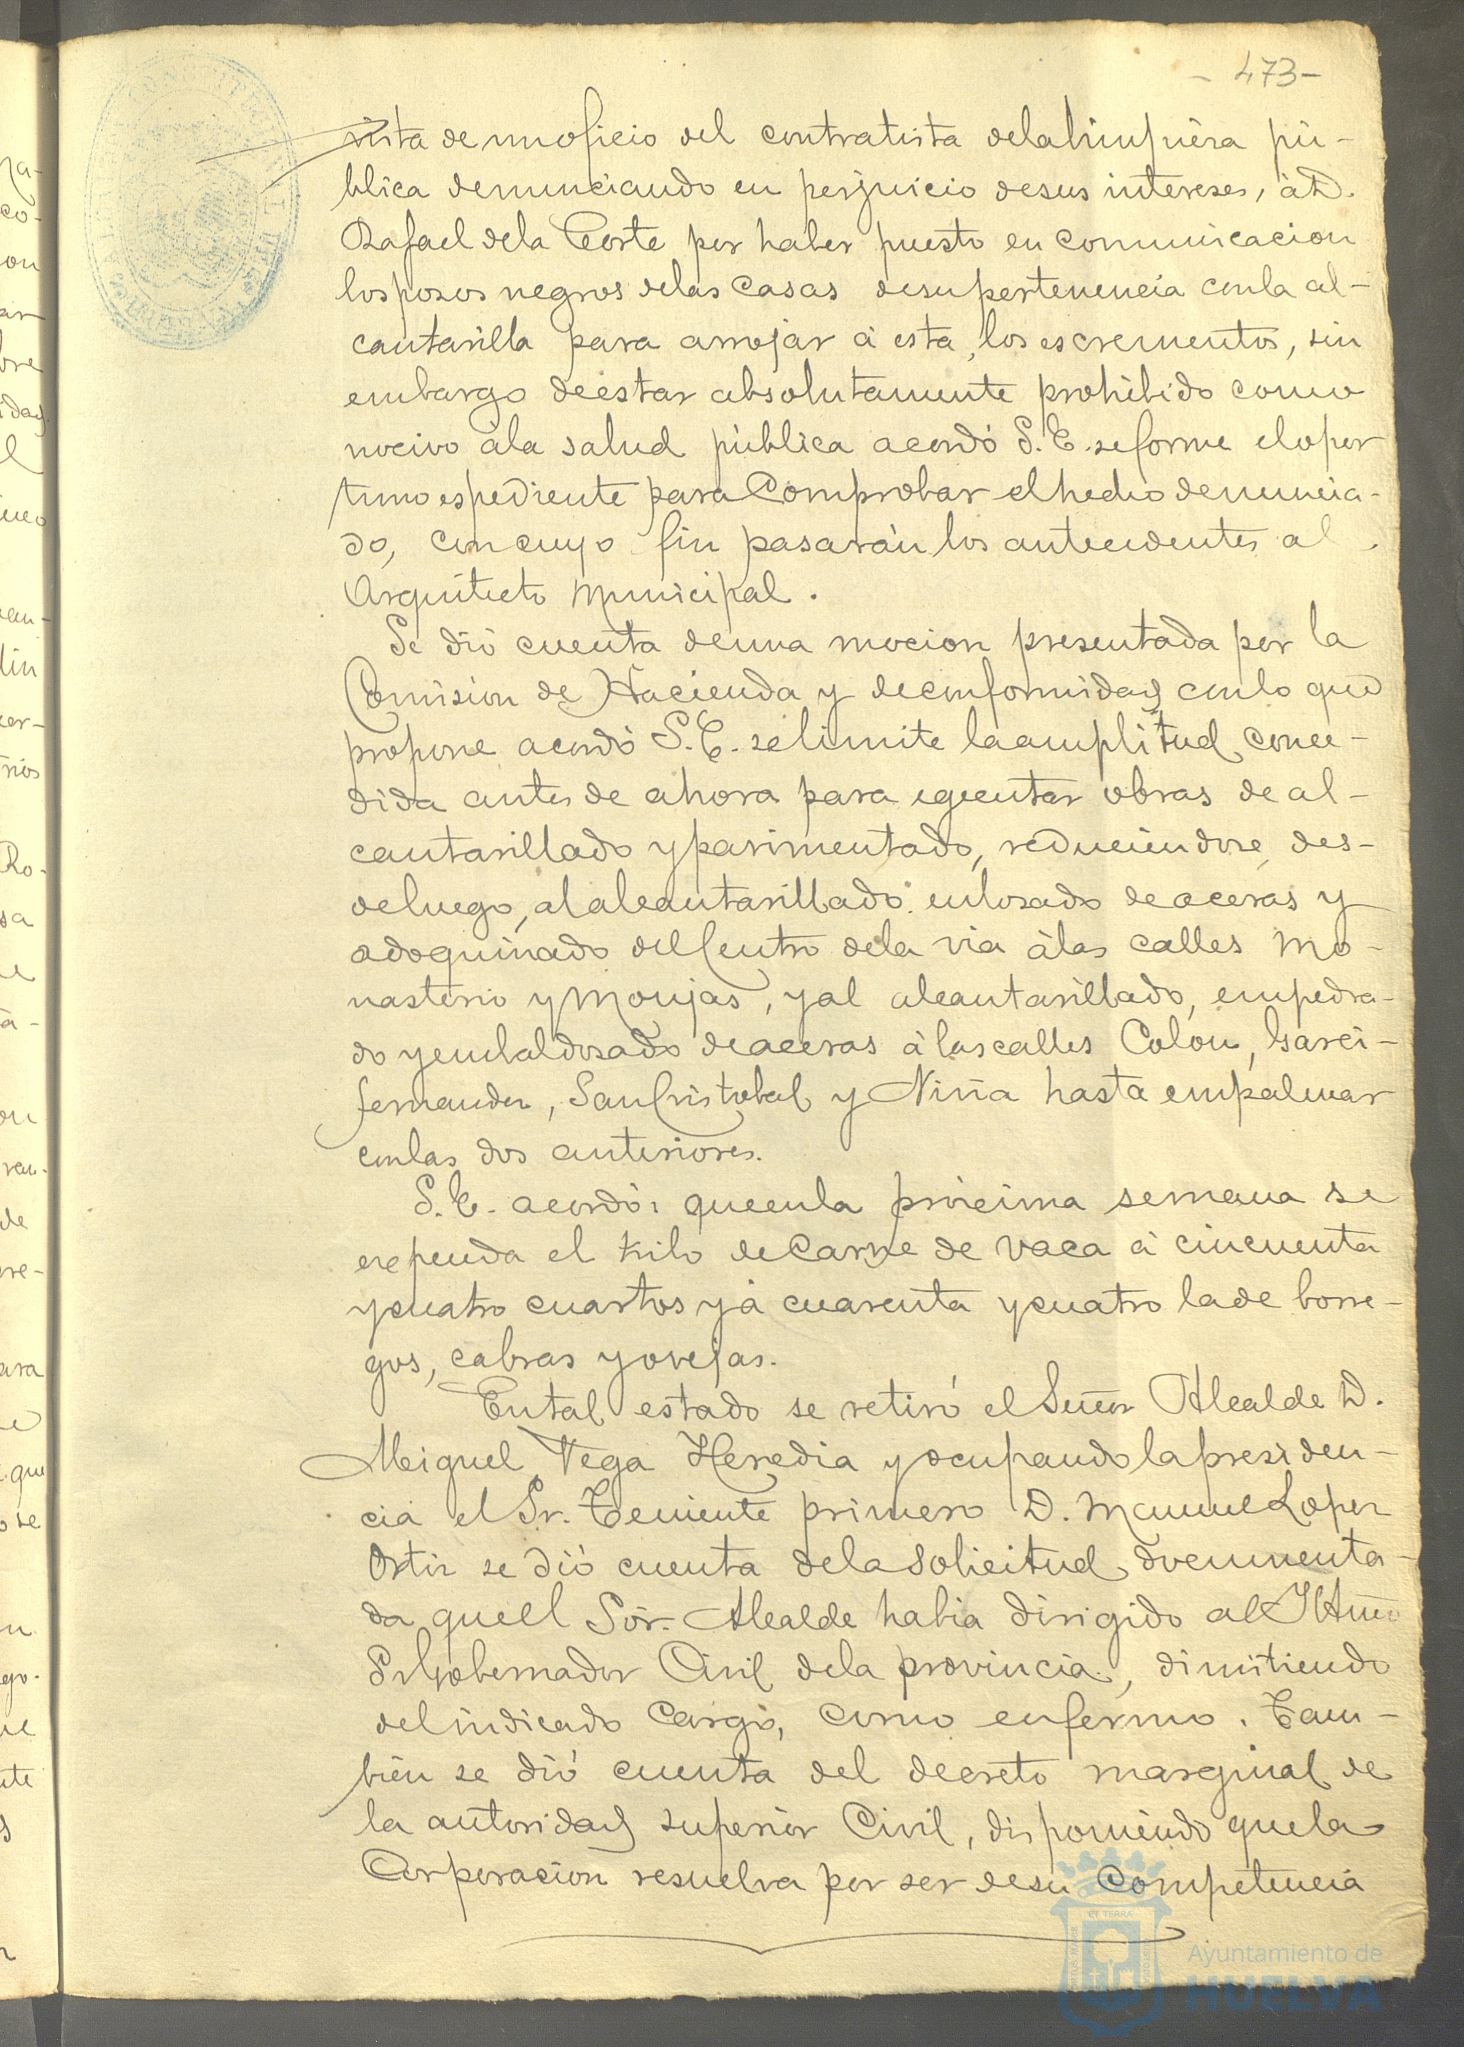 - 473 -
vista de un oficio del contratista de la limpiéza pú-
blica denunciando en perjuicio de sus intereses, á D.
Rafael de la Corte por haber puesto en comunicacion
los pozos negros de las casas de su pertenencia con la al-
cantarilla para arrojar á esta, los escrementos, sin
embargo de estar absolutamente prohibido como
nocivo á la salud pública acordó S. E. se forme el opor
tuno espediente para comprobar el hecho denuncia-
do, con cuyo fin pasarán los antecedentes al
Arquitecto Municipal.
Se dió cuenta de una mocion presentada por la
Comision de Hacienda y de conformidad con lo que
propone acordó S. E. se limite la amplitud conce-
dida antes de ahora para egecutar obras de al-
cantarillado y pavimentado, reduciéndose, des-
de luego, al alcantarillado enlosado de aceras y
adoquinado del Centro de la via á las calles Mo-
nasterio y Monjas, y al alcantarillado, empedra-
do y embaldosado de aceras á las calles Colon, Garci-
fernandez, San Cristobal y Niña hasta empalmar
con las dos anteriores.
S. E. acordó: que en la prócsima semana se
expenda el kilo de Carne de vaca á cincuenta
y cuatro cuartos y á cuarenta y cuatro la de borre-
gos, cabras y ovejas.
En tal estado se retiró el Señor Alcalde D.
Miguel Vega Heredia y ocupando la presiden-
cia el Sr. Teniente primero D. Manuel Lopez
Ortiz se dió cuenta de la solicitud documenta-
da que el Sór. Alcalde habia dirigido al Iltmo
Sr Gobernador Civil de la provincia, dimitiendo
del indicado Cargo, como enfermo. Tam-
bién se dió cuenta del decreto marginal de
la autoridad superior Civil, disponiendo que la
Corporacion resuelva por ser de su Competencia
Ayuntamiento de
HUELVA